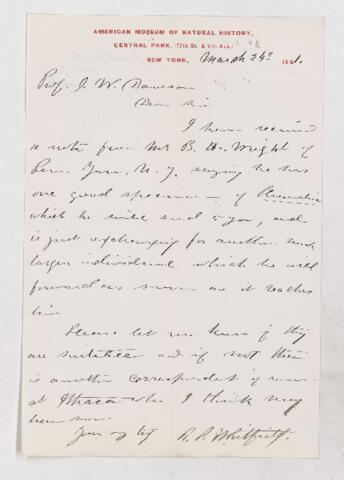 AMERICAN MUSEUM OF NATURAL HISTORY,
CENTRAL PARK, (77th St. & 8th Ave.)
NEW YORK, March 24th 1881.
Prof. J. W. Dawson
Dear Sir
I have received
a note from Mr B. H. Wright of
Penn Yan, N. Y. saying he has
one good specimen of
which he will send to you, and
is just exchanging for another much
larger individual which he will
forward as soon as it reaches
him.
Please let me know if they
are suitable and if not there
is another correspondent of mine
at Ithaca who I think may
have some.
Yours truly R. P. Whitfield.